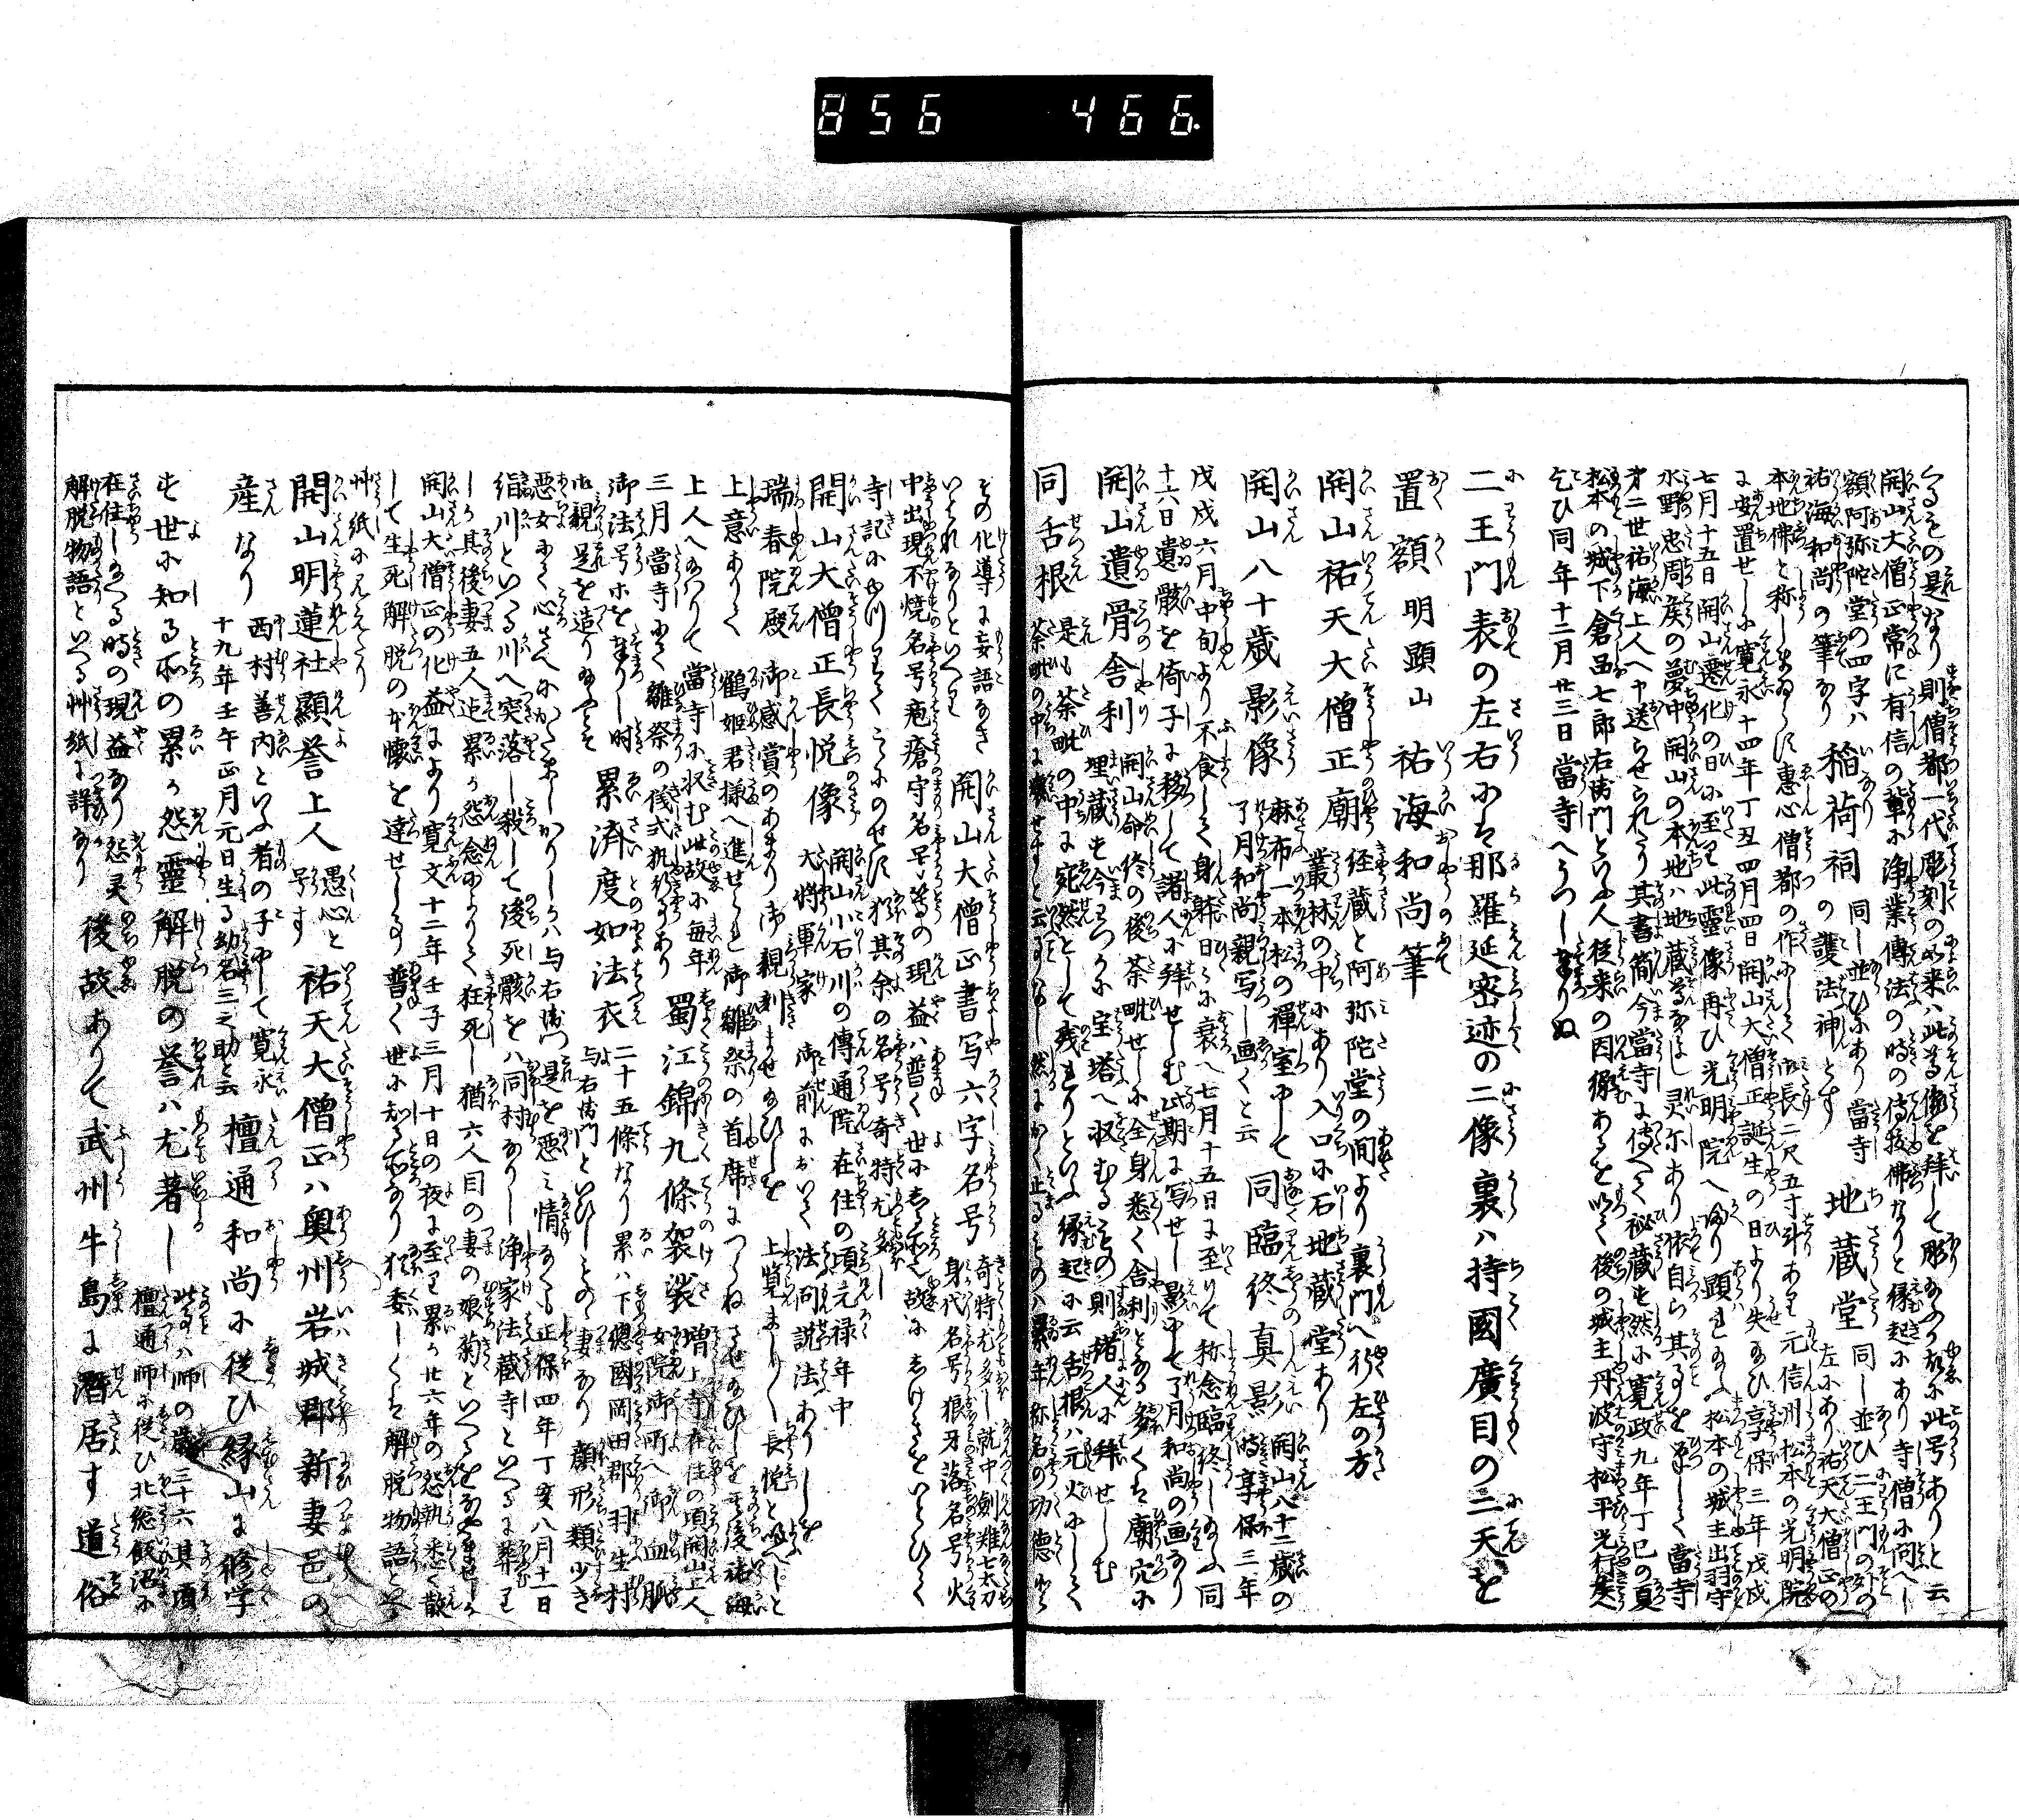 856 466.
くるその是なり則僧都一代彫刻の如来ハ此尊像を拝して彫給ふ故に此号ありと云
開山大僧正常に有信の輩に浄業傳法の時の傳授佛なりと縁起にあり寺僧に問へし
額阿弥陀堂の四字ハ祐海和尚の筆なり 稲荷祠 同し並ひにあり當寺の護法神とす 地蔵堂 同し並ひ二王門の外の左にあり祐天大僧正の
本地佛と称しまゐらに恵心僧都の作にして 御長二尺五寸斗あり元信洲松本の光明院
に安置せしに寛永十四年丁丑四月四日開山大僧正誕生の日より失給ひ享保三年戊戌
七月十五日開山遷化の日に至り此靈像再ひ光明院へ帰り顕れ給ふ松本の城主出羽守
水野忠周矦の夢中開山の本地ハ地蔵尊なるよし灵示あり依自ら其事を筆して當寺
第二世祐海上人へ送らせられたり其書簡今當寺に傳へて秘蔵せり然に寛政九年丁巳の夏
松本の城下倉品七郎右衛門といふ人従来の因縁あるを以て後の城主丹波守松平光行矦へ
乞ひ同年十二月廿三日當寺へうつしまゐりぬ
二王門表の左右にハ那羅延密迹の二像裏ハ持國廣目の二天を
置額 明顕山 祐海和尚筆
開山祐天大僧正廟 経蔵と阿弥陀堂の間より裏門へ行左の方叢林の中にあり入口に石地蔵堂あり
開山八十歳影像 麻布一本松の禅室中して了月和尚親写し画くと云 同臨終真影 開山八十二歳の時享保三年
戊戌六月中旬より不食して身躰日々に衰へ七月十五日に至りて称念臨終し給ふ同
十六日遺骸を倚子に移して諸人に拝せしむ此期に写せし影にして了月和尚の画なり
開山遺骨舎利 開山命終の後荼毗せしに全身悉く舎利となる多くハ廟穴に埋蔵せり今わつかに宝塔へ収むるその則諸人に拝せしむ
同舌根 是も荼毗の中に宛然として残れりといふ縁起に云舌根ハ元火にして荼毗の中に
その化導に妄語なき
いはれなりといへり 開山大僧正書写六字名号 奇特尤多し就中劔難七太刀身代名号狼牙落名号火
中出現不焼名号疱瘡守名号等の現益ハ普く世にしる所也故にしけきをいとひて
寺記にゆつりてこゝにのせす猶其余の名号奇特尤多し
開山大僧正長悦像 開山小石川の傳通院在住の頃元禄年中大将軍家御前において法問説法ありしを
瑞春院殿御感賞のあまり御親刻ませ給ひしを上覧ましまして長悦と唱へしと
上意ありて鶴姫君様へ進せられ御雛祭の首席につらねさせ給ひしを其後祐海
上人へ給りて當寺に収む此故に毎年
三月當寺にて雛祭の儀式執行あり 蜀江錦九條袈裟 増上寺在住の頃開山上人女院御所へ御血脉
御法号等を奉りし時
御親是を造り給ふと 累済度如法衣 二十五條なり累ハ下總國岡田郡羽生村与右衛門といひしものゝ妻なり顔形類少き
悪女にて心さへにかたましかりしかハ与右衛門是を悪ミ情なくも正保四年丁亥八月十一日
絹川といへる川へ突落し殺して後死骸をハ同村なりし浄家法蔵寺といへるに葬れり
しか其後妻五人迄累か怨念によりて狂死し猶六人目の妻の娘菊といへるをなやませしか
開山大僧正の化益により寛文十二年壬子三月十日の夜に至り累か廿六年の怨執悉く散
して生死解脱の本懐を達せしる事普く世に知る所なり猶委しくハ解脱物語と云
艸紙に見えたり
開山明蓮社顕誉上人 愚心と号す 祐天大僧正ハ奥州岩城郡新妻邑の
産なり 西村善内といふ者の子にして寛永十九年壬午正月元日生る幼名三之助と云 檀通和尚に従ひ縁山に修学
せ世に知る所の累か怨靈解脱の誉ハ尤著し 此事ハ師の歳三十六其頃檀通師に従ひ北総飯沼に
在住し給へる時の現益なり怨灵
解脱物語といへる艸紙に詳なり 後故ありて武州牛島に潜居す道俗